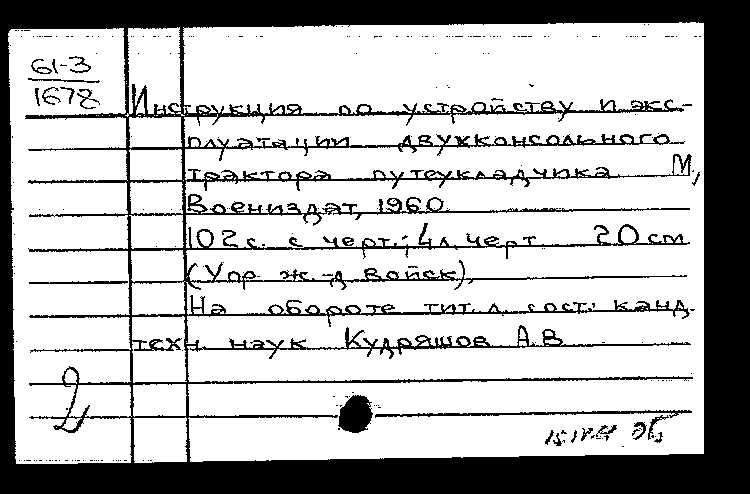 61-3
1678
Инструкция по устройству и экс-
плуатации двухконсольного
трактора путеукладчика М.,
Воениздат, 1960.
102 с. с черт.; 4 л. черт. 20 см
(Упр. ж.-д войск).
На обороте тит. л. сост.: канд.
техн. наук Кудряшов А.В.
2